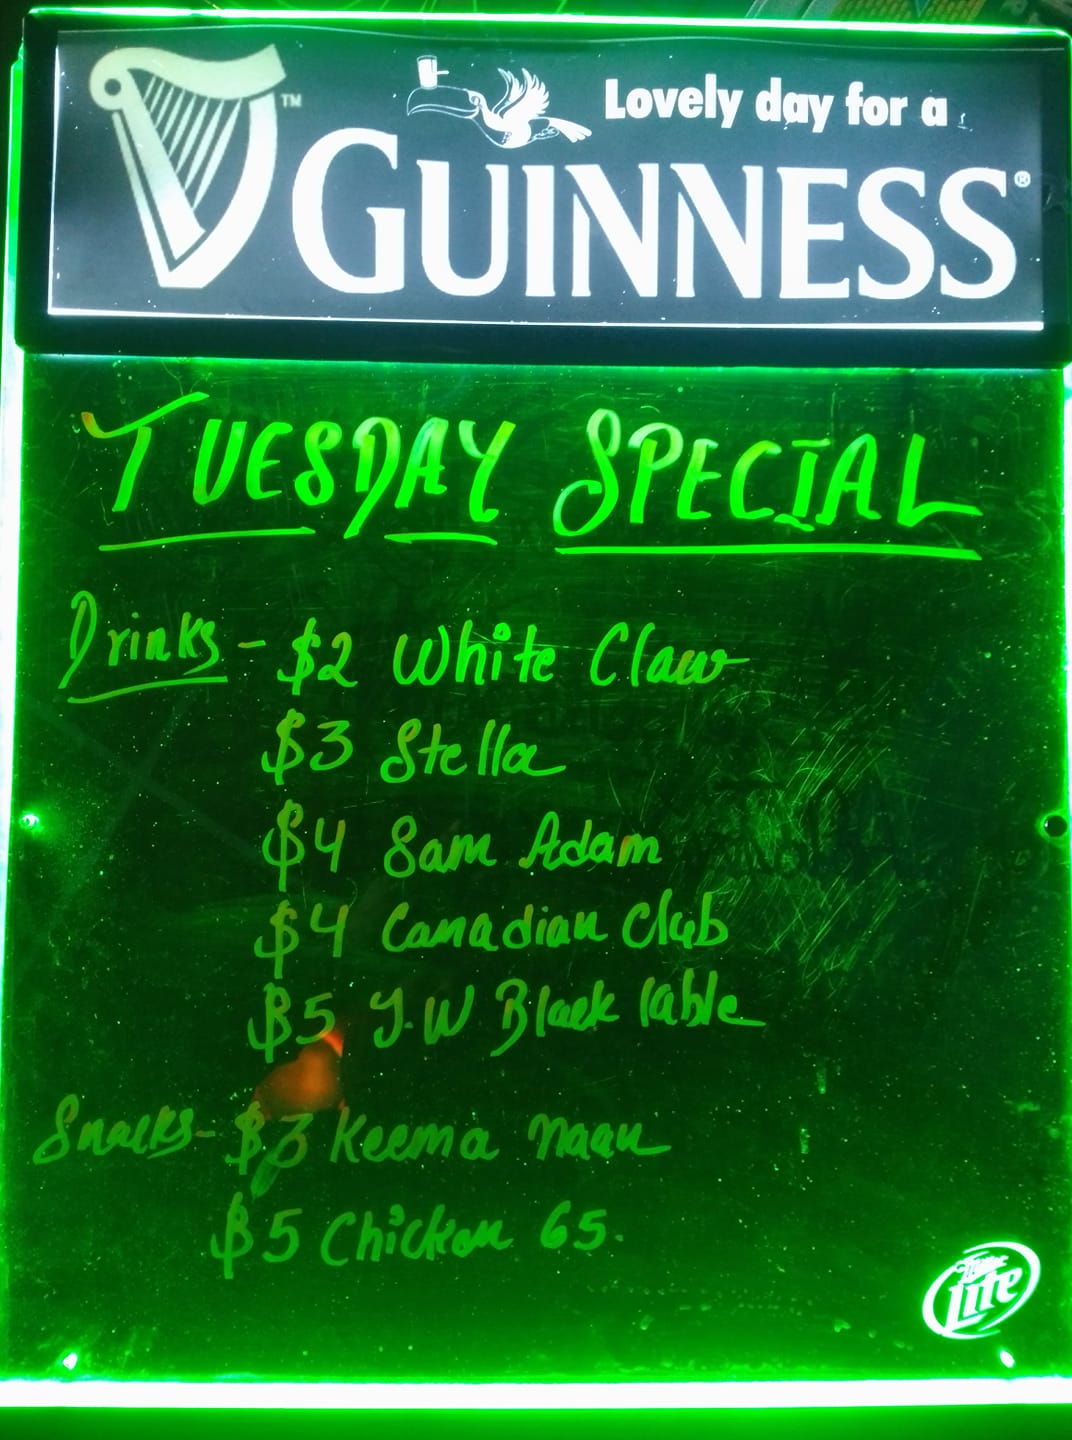 Lovely day for a
GUINNESS®
TUESDAY SPECIAL
Drinks - $2 White Claw
$3 Stella
$4 Sam Adam
$4 Canadian Club
$5 J.W Black lable
Snacks - $3 Keema naan
$5 Chicken 65.
Miller
Lite